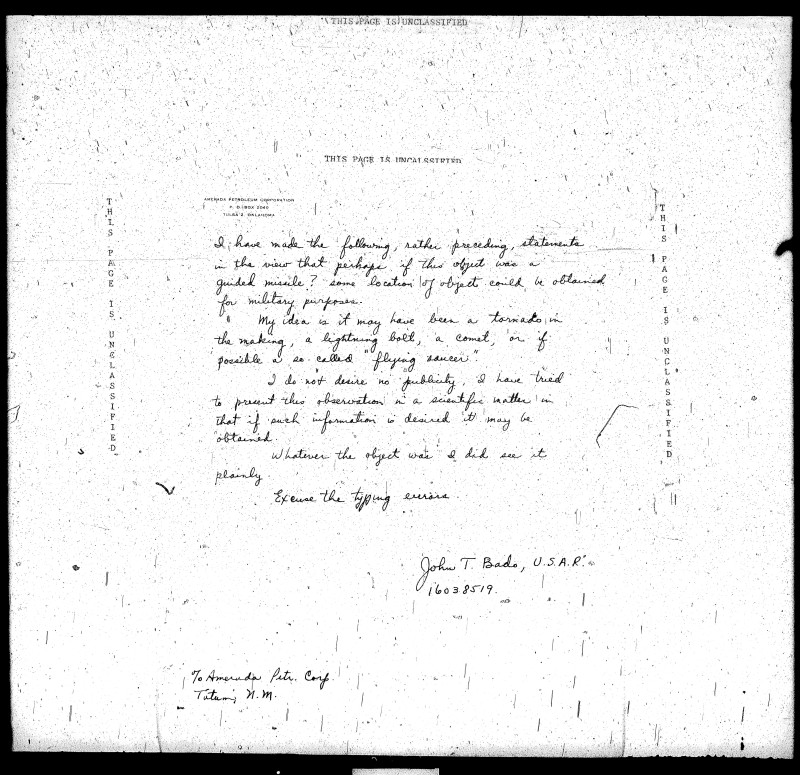 THIS PAGE IS UNCLASSIFIED
THIS PAGE IS UNCALSSIFIED
AMERADA PETROLEUM CORPORATION
P. O. BOX 2040
TULSA 2, OKLAHOMA
THIS PAGE IS UNCLASSIFIED
THIS PAGE IS UNCLASSIFIED
I have made the following, rather preceding, statements
in the view that perhaps if this object was a
guided missile? some location of object could be obtained
for military purposes.
My idea is it may have been a tornado in
the making, a lightning bolt, a comet, or if
possible a so-called "flying saucer".
I do not desire no publicity, I have tried
to present this observation in a scientific matter in
that if such information is desired it may be
obtained.
Whatever the object was I did see it
plainly.
Excuse the typing errors.
John T. Bado, U.S.A.R.
16038519.
% Amerada Petr. Corp.
Tatum, N.M.